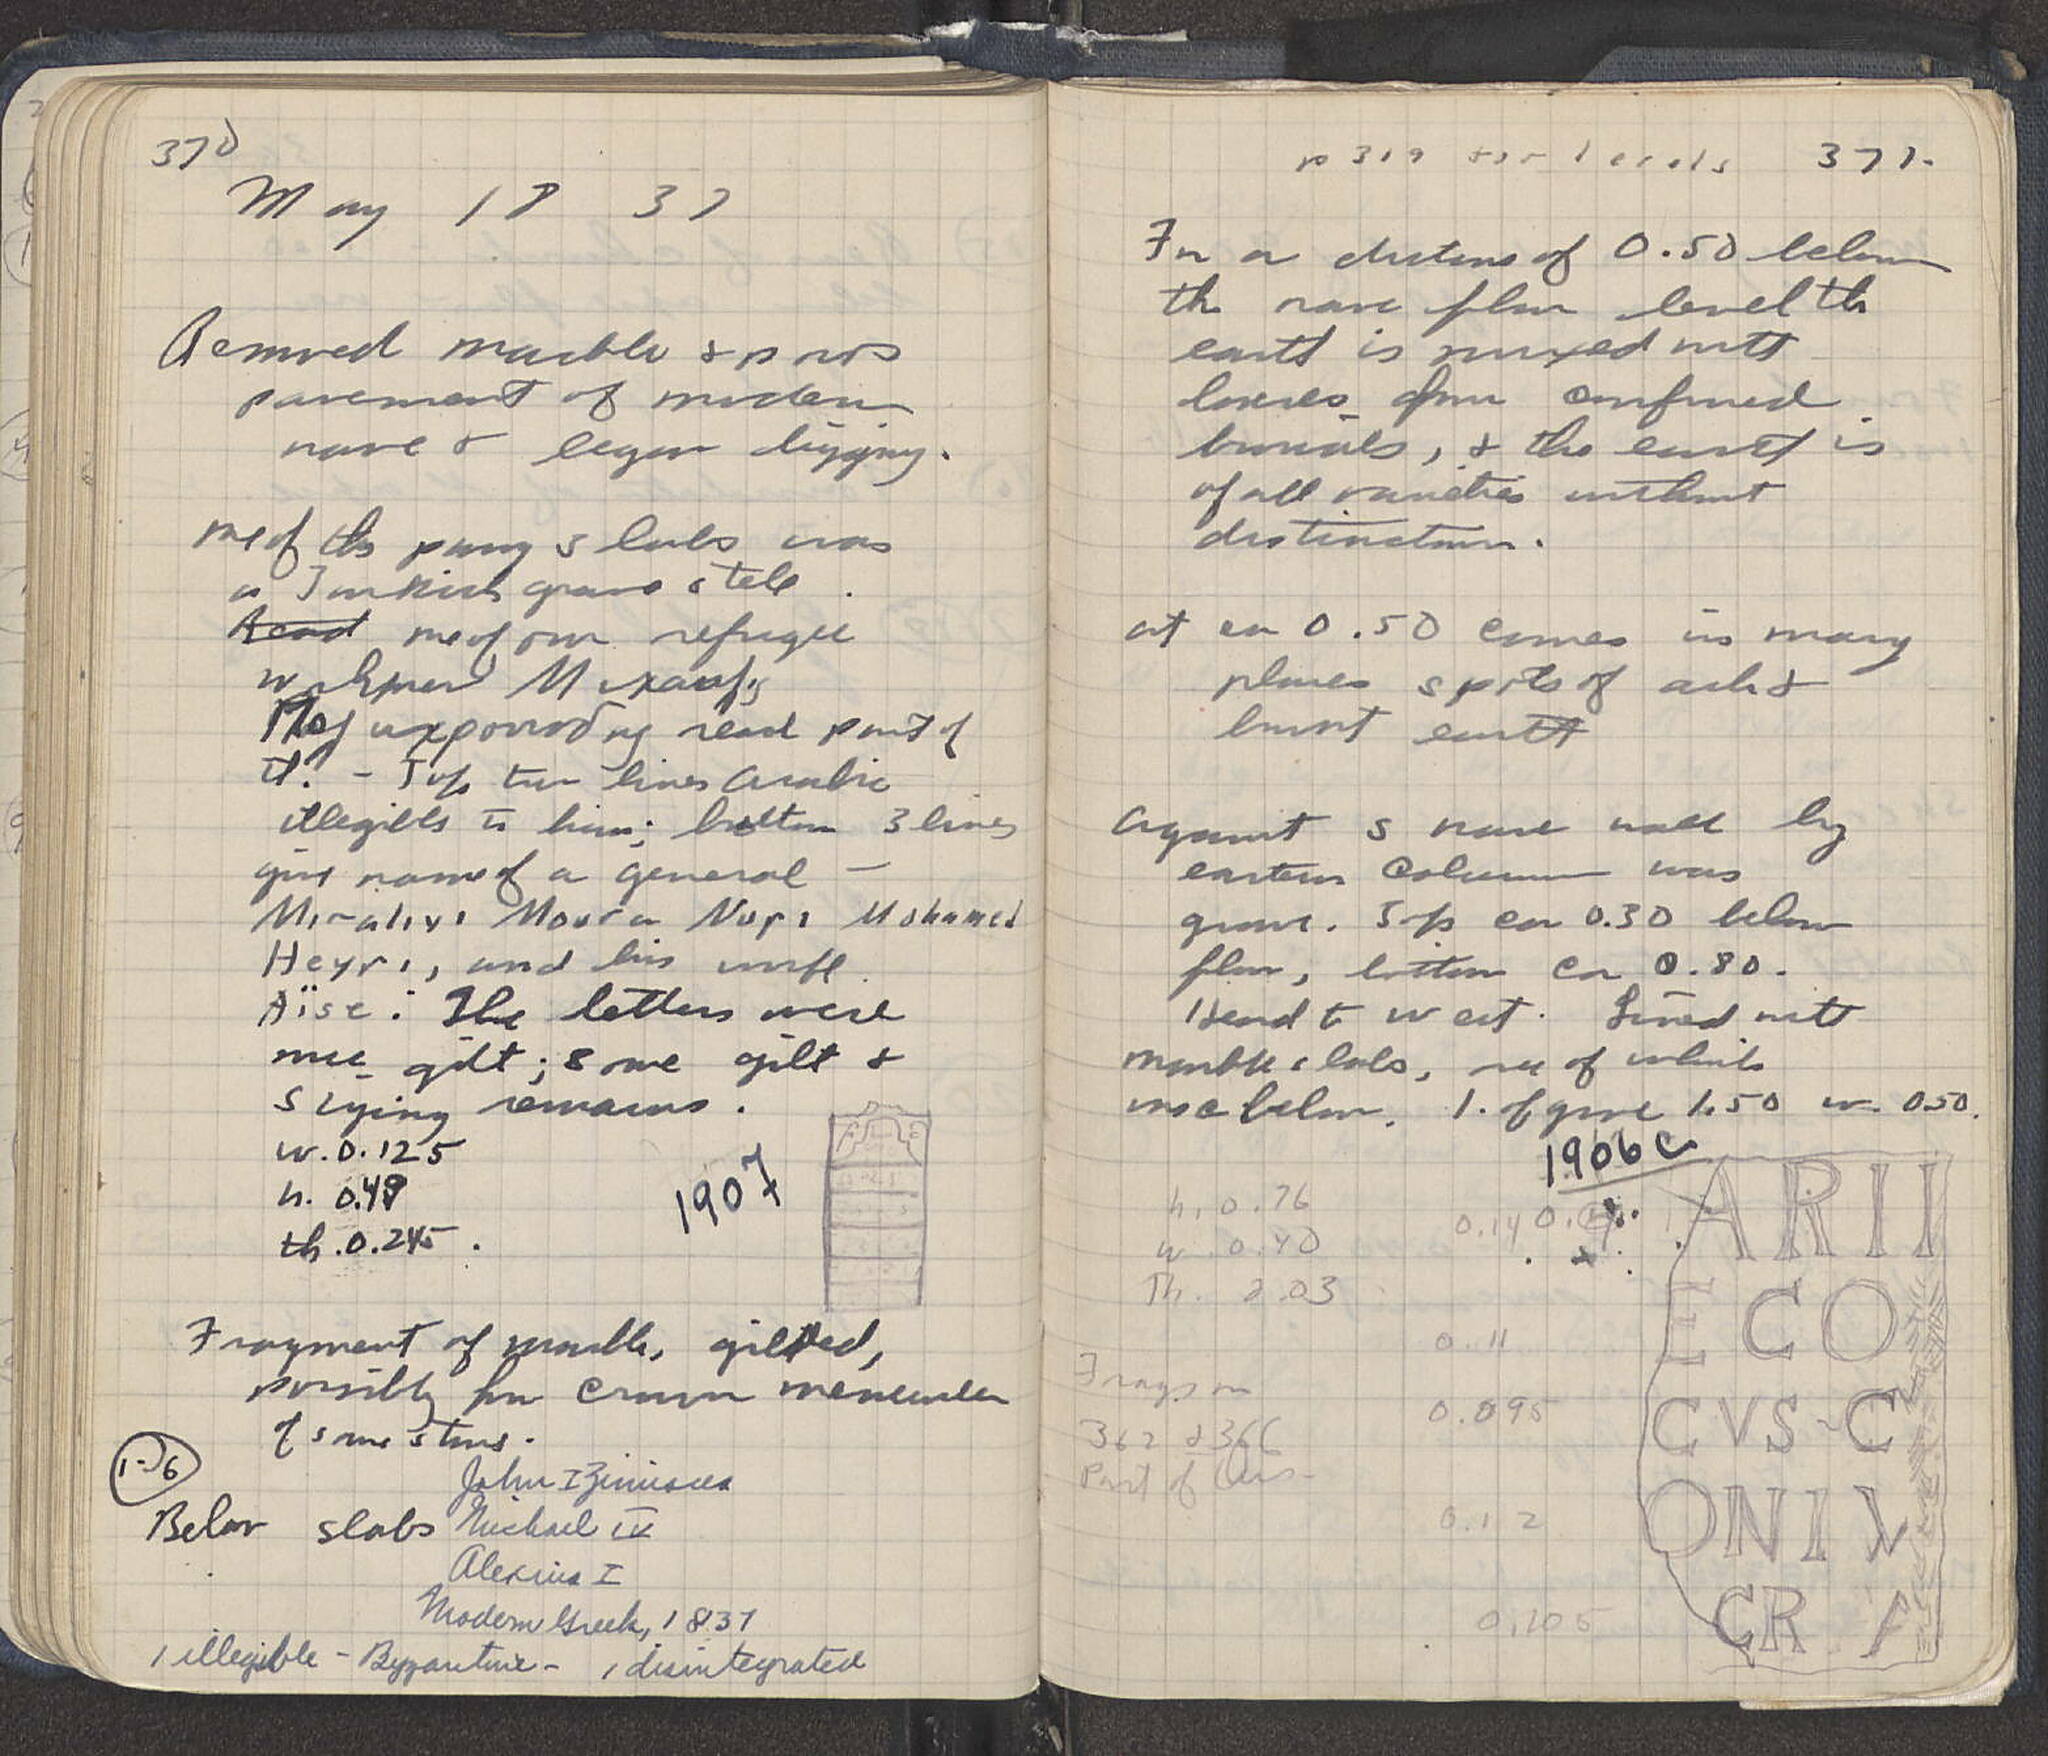 370
May 18 37
Removed marble & poros
pavement of modern
nave & began digging.
One of the paving slabs was
a Turkish grave stele.
Read one of our refugee
workmen
read part of
it. - Top two lines Arabic
illegible to him; bottom 3 lines
give name of a general -
Miralivi Mousa Nuri Mohamed
Heyri, and his wife
Aïse. The letters were
once gilt; some gilt &
sizing remains.
w. 0.125
h. 0.49
th. 0.245.
1907
Fragment of marble, gilded,
possibly from crown
of some sort.
1-6
John I Zimisces
Below slabs Michael IV
Alexius I
Modern Greek, 1837
1 illegible - Byzantine - 1 disintegrated
p 319 for levels 371.
For a distance of 0.50 below
the nave floor level the
earth is mixed with
bones from confused
burials, & the earth is
of all varieties without
distinction.
at ca 0.50 comes in many
places spots of ash &
burnt earth
Against S nave wall by
eastern column was
grave. Top ca 0.30 below
floor, bottom ca 0.80.
Head to west. Lined with
marble slabs, one of which
insc below. l. of grave 1.50 w. 0.50.
1906 C
h. 0.76
w 0.40
Th. 2.03
0.14
0.11
0.095
0.12
0.105
Frags on
362 & 366
Part of this
ARII
ECO
CVS~C
ONIV
CR